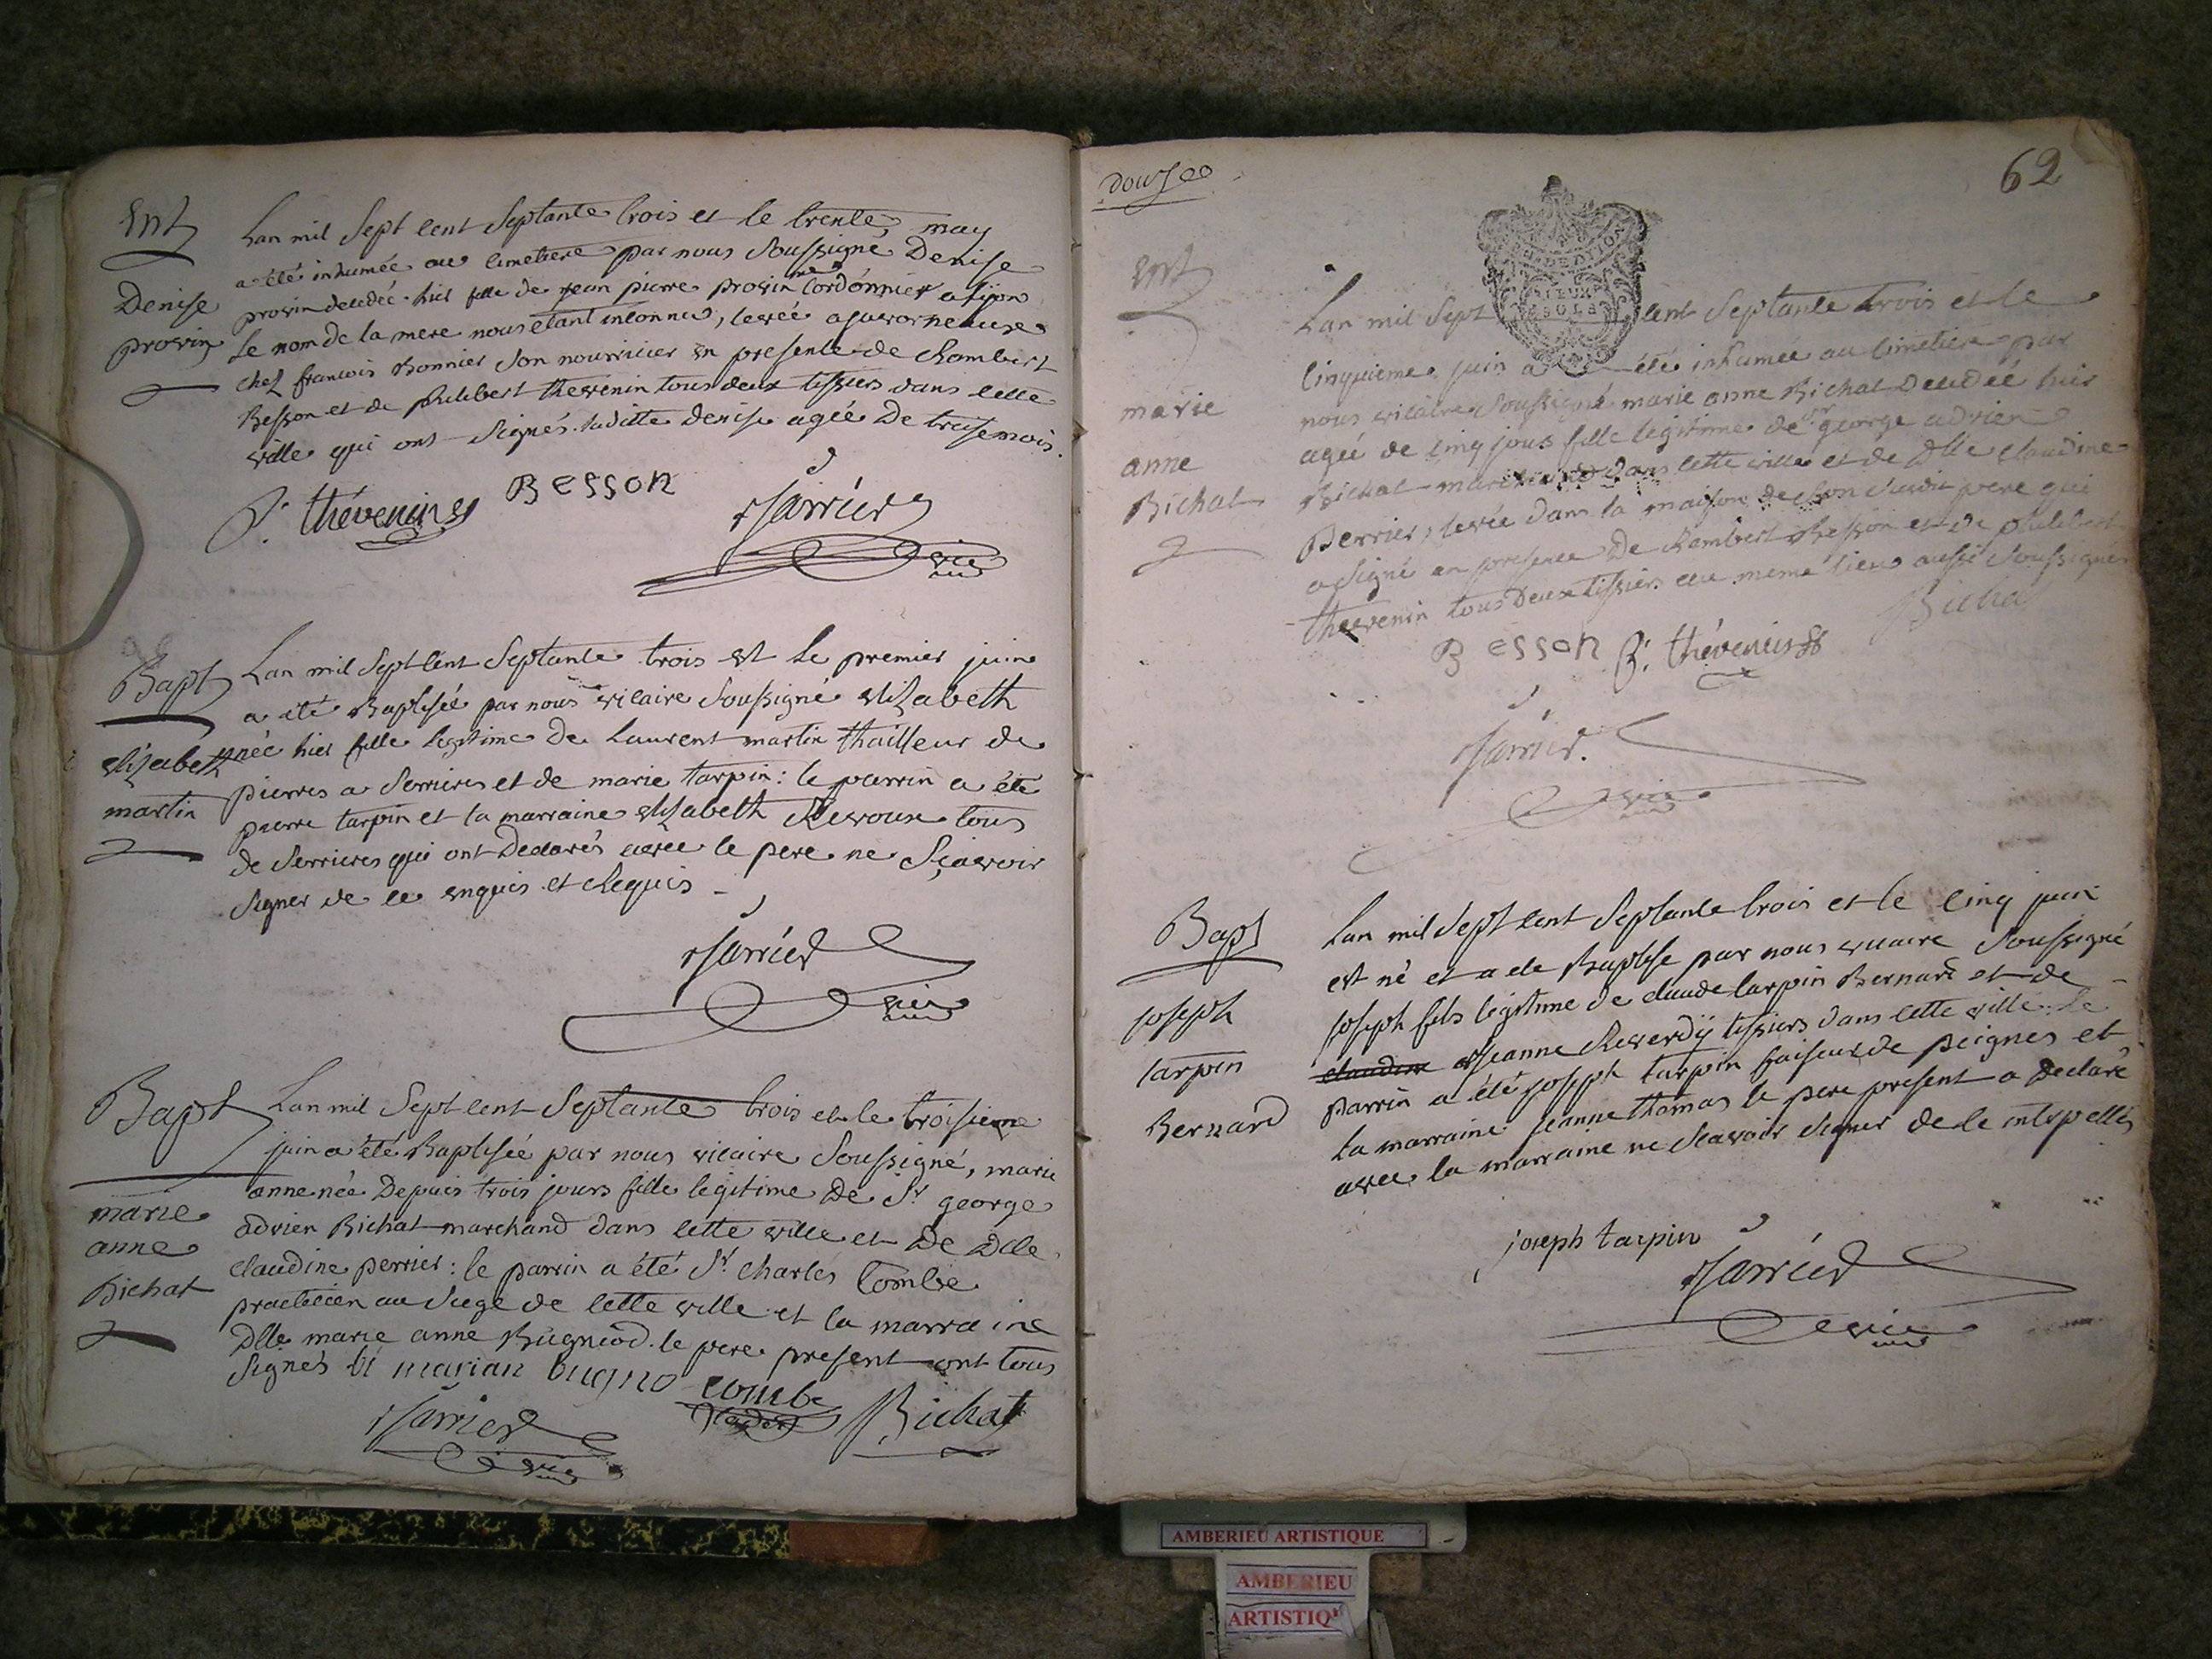 Ent
Denise
provin
Lan mil Sept cent Septante trois et le trente may
a été inhumée au cimetiere par nous Soussigné Denise
provin decedée hier fille de jean pierre provin Cordonnier a lyon
le nom de la mere nous etant inconnue, levée a
chez francois Bonnier son nourricier en presence de Rambert
Besson et de philibert thevenin tous deux tissiers dans cette
ville qui ont signés. laditte denise agée De treise mois.
P. thévenin
BESSON
vic
Bapt
elizabeth
martin
Lan mil Sept cent Septante trois et le premier juin
a été Baptisée par nous vicaire Soussigné elizabeth
née hier fille legitime de Laurent martin thailleur de
pierres a Serrieres et de marie tarpin: le parrin a été
pierre tarpin et la marraine elizabeth Revoux tous
de Serrieres qui ont Declarés avec le pere ne Sçavoir
signer de ce enquis et Requis
vic
Bapt
marie
anne
Bichat
Lan mil Sept cent Septante trois et le troisieme
juin a été Baptisée par nous vicaire Soussigné, marie
anne née Depuis trois jours fille legitime De Sr george
adrien Bichat marchand dans cette ville et De Dlle
claudine perrier: le parrin a été Sr charles Combe
practicien au siege de cette ville et la marraine
Dlle marie anne Bugniod. le pere present ont tous
signés
marian bugno
combe
Bichat
vic
douze
62
Ent
marie
anne
Bichat
Lan mil Sept cent Septante trois et le
cinquieme juin a été inhumée au cimetiere par
nous vicaire Soussigné marie anne Bichat decedée hier
agée de cinq jours fille legitime de Sr george adrien
Bichat marchand dans cette ville et de Dlle claudine
Perrier, levée dans la maison de son susdit pere qui
a signé en presence De Rambert Besson et de philibert
thevenin tous Deux tissiers au meme lieu aussi Soussignés
BESSON
P. thévenin
Bichat
vic
Bapt
joseph
tarpin
Bernard
Lan mil Sept cent Septante trois et le cinq juin
est né et a ete Baptise par nous vicaire Soussigné
joseph fils legitime de claude tarpin Bernard et de
claudine jeanne Reverdÿ tissiers dans cette ville. le
parrin a été joseph tarpin faiseur de peignes et
la marraine jeanne thomas le pere present a declaré
avec la marraine ne Scavoir signer de ce interpellés
joseph tarpin
vic
AMBERIEU ARTISTIQUE
AMBERIEU
ARTISTIQ